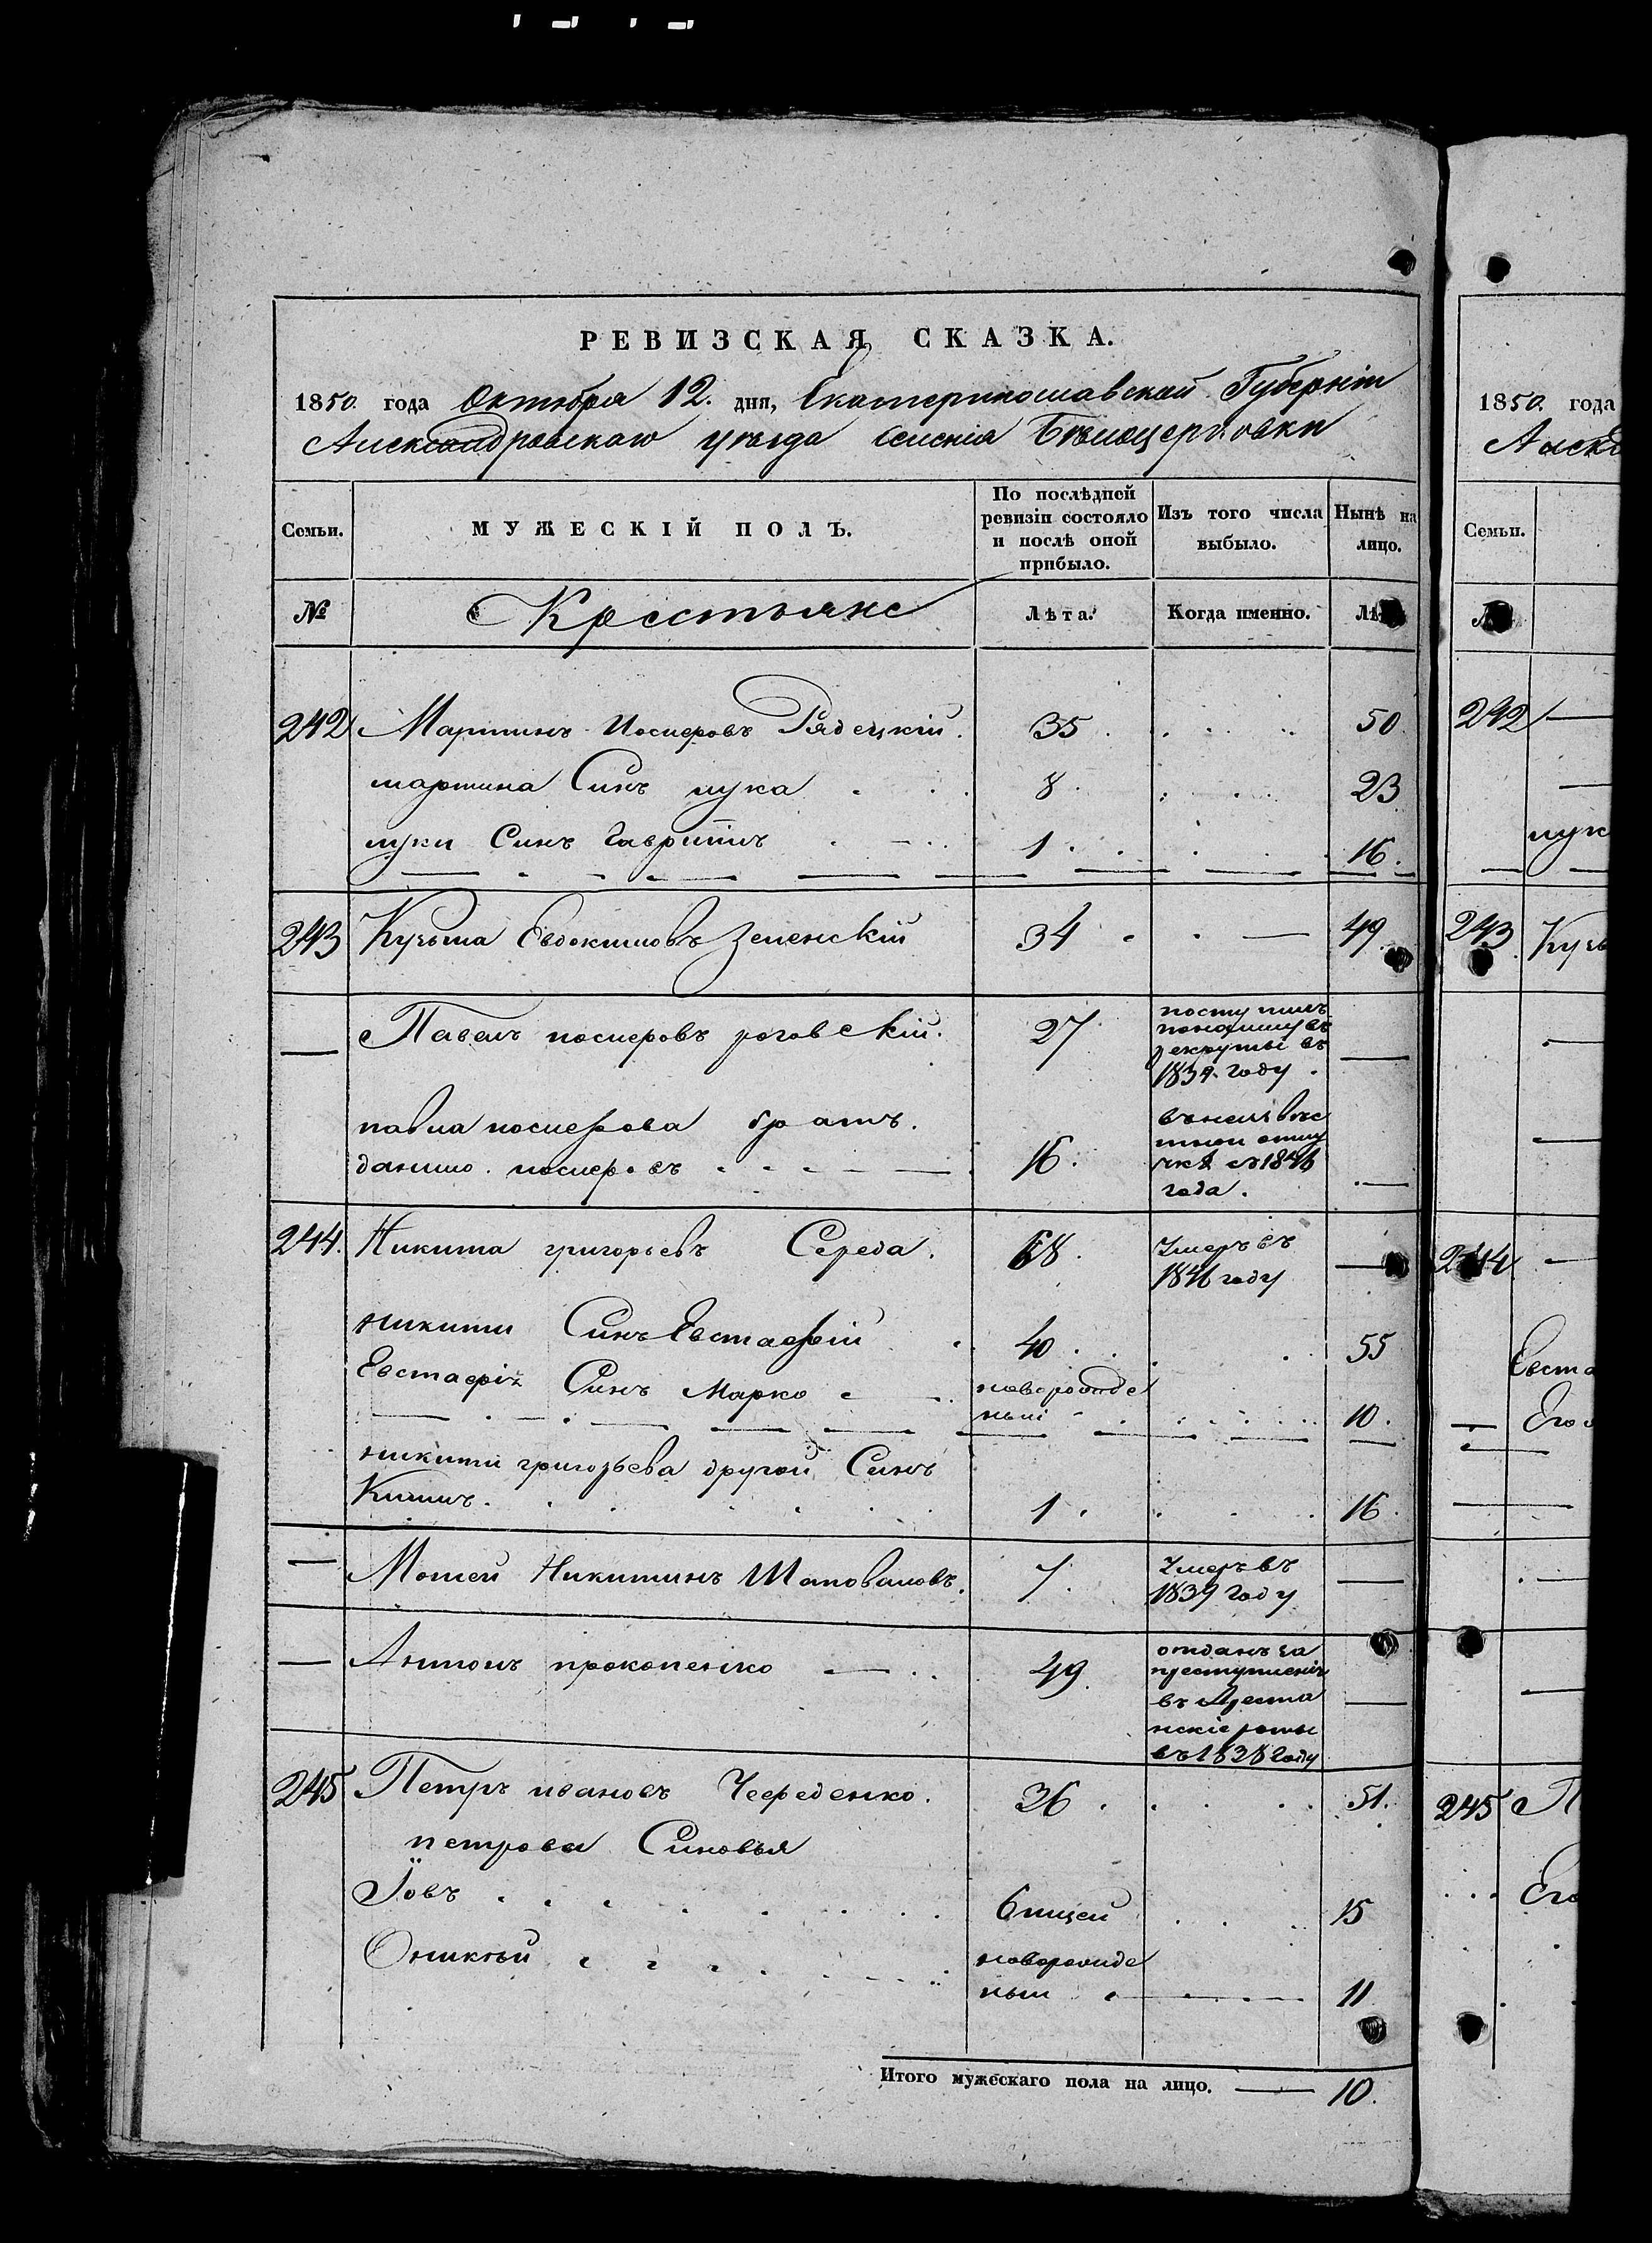 РЕВИЗСКАЯ СКАЗКА.
1850. года Октября 12. дня, Екатеринославской Губерніи
Александровскаго уѣзда селенія Бѣлоцерковки
Семьи. МУЖЕСКІЙ ПОЛЪ. По послѣдней ревизіи состояло и послѣ оной прибыло. Изъ того числа выбыло. Нынѣ на лицо.
№ Крестьяне Лѣта. Когда именно.
242 Мартинъ Иосифовъ Рядецкій. 35. 50
мартина Синъ лука 8. 23
луки Синъ Гаврiилъ 1. 16.
243 Кузьма Евдокимовъ Зеленскій 34 49.
— Павелъ иосифовъ роговскій. 27 поступилъ
въ
рекруты въ
1839. году.
павла иосифова братъ.
данило. иосифовъ 16. въ неизвѣс
тной отлу
чкѣ съ 1846
года.
244. Никита григорьевъ Середа. 68. Умеръ въ
1846 году
никити Синъ Евстафій 40. 55
Евстафія Синъ Марко новорожде
ный 10.
никити григорьева другой Синъ
1. 16.
— Мотей Никитинъ Шаповаловъ. 7. Умеръ въ
1839 году
— Антонъ прокопенко 49. отданъ за
преступленія
въ Ареста
нскіе роты
въ 1838 году
245 Петръ ивановъ Череденко. 36. 51.
петрова Синовья
Іовъ 6 мцей 15
Оникѣй новорожде
ный 11
Итого мужескаго пола на лицо. — 10.
1850. года
Алекс
Семьи.
242
лук
243 Кузь
244
Евста
Его
245 П
Его